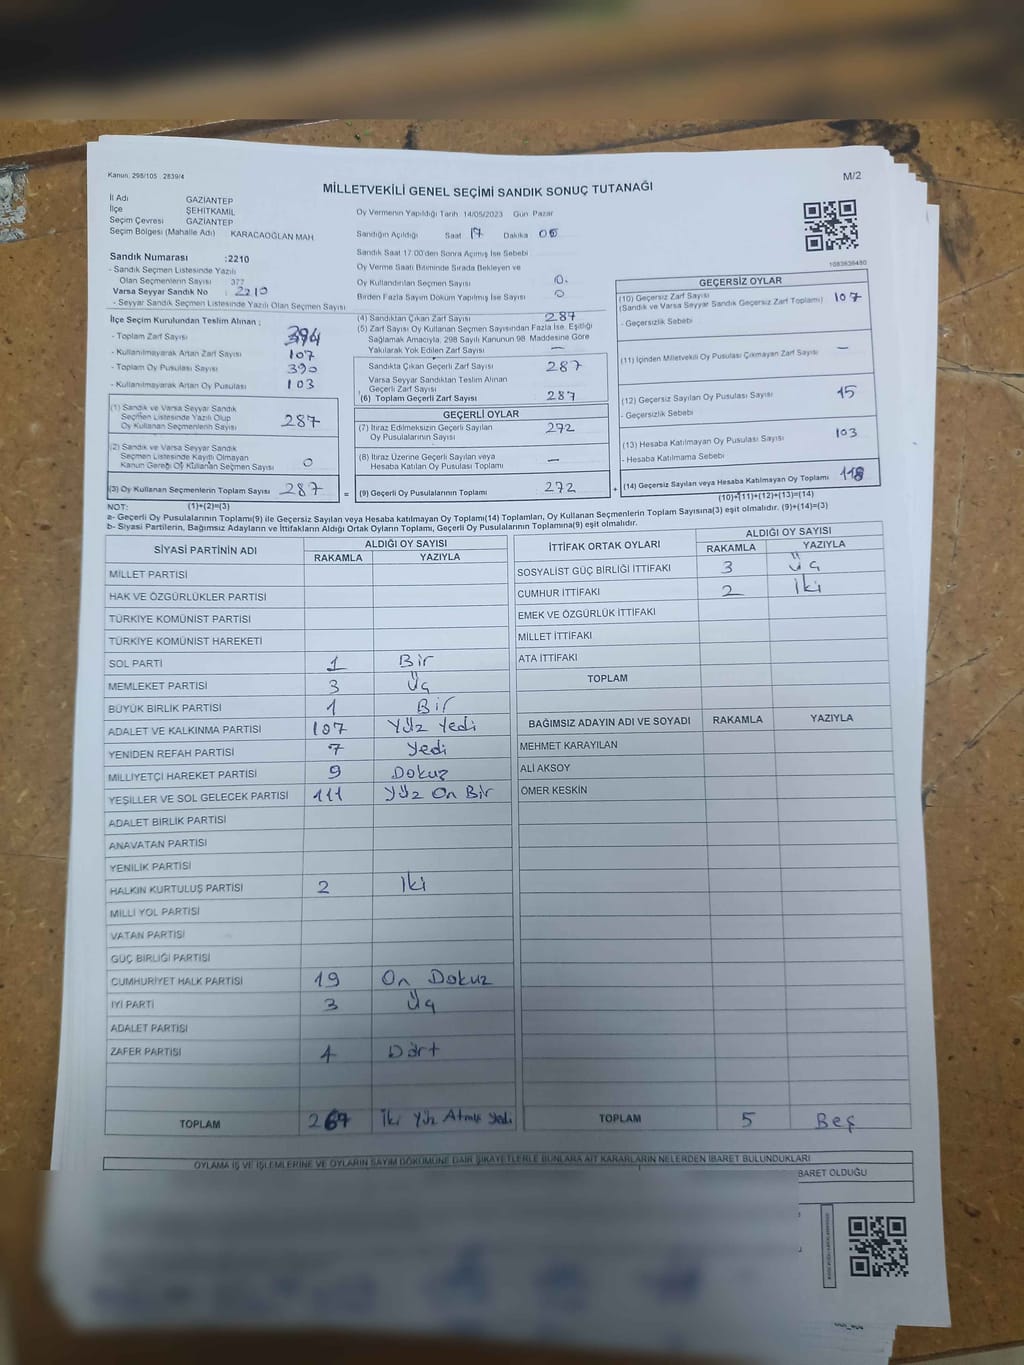 Kanun: 298/105 2839/4
M/2
MİLLETVEKİLİ GENEL SEÇİMİ SANDIK SONUÇ TUTANAĞI
İl Adı GAZİANTEP
İlçe ŞEHİTKAMİL
Seçim Çevresi GAZİANTEP
Seçim Bölgesi (Mahalle Adı) KARACAOĞLAN MAH
Oy Vermenin Yapıldığı Tarih 14/05/2023 Gün Pazar
Sandığın Açıldığı Saat 17 Dakika 05
Sandık Saat 17.00'den Sonra Açılmış İse Sebebi
Oy Verme Saati Bitiminde Sırada Bekleyen ve
Oy Kullandırılan Seçmen Sayısı 0.
Birden Fazla Sayım Döküm Yapılmış İse Sayısı 0
1083636480
Sandık Numarası :2210
- Sandık Seçmen Listesinde Yazılı
Olan Seçmenlerin Sayısı : 377
Varsa Seyyar Sandık No : 2210
- Seyyar Sandık Listesinde Yazılı Olan Seçmen Sayısı
İlçe Seçim Kurulundan Teslim Alınan ;
- Toplam Zarf Sayısı 394
- Kullanılmayarak Artan Zarf Sayısı 107
- Toplam Oy Pusulası Sayısı 390
- Kullanılmayarak Artan Oy Pusulası 103
(1) Sandık ve Varsa Seyyar Sandık
Seçmen Listesinde Yazılı Olup
Oy Kullanan Seçmenlerin Sayısı 287
(2) Sandık ve Varsa Seyyar Sandık
Seçmen Listesinde Kayıtlı Olmayan
Kanun Gereği Oy Kullanan Seçmen Sayısı 0
(3) Oy Kullanan Seçmenlerin Toplam Sayısı 287 =
(4) Sandıktan Çıkan Zarf Sayısı 287
(5) Zarf Sayısı Oy Kullanan Seçmen Sayısından Fazla İse, Eşitliği
Sağlamak Amacıyla, 298 Sayılı Kanunun 98. Maddesine Göre
Yakılarak Yok Edilen Zarf Sayısı —
Sandıkta Çıkan Geçerli Zarf Sayısı 287
Varsa Seyyar Sandıktan Teslim Alınan
Geçerli Zarf Sayısı
(6) Toplam Geçerli Zarf Sayısı 287
GEÇERLİ OYLAR
(7) İtiraz Edilmeksizin Geçerli Sayılan
Oy Pusulalarının Sayısı 272
(8) İtiraz Üzerine Geçerli Sayılan veya
Hesaba Katılan Oy Pusulası Toplamı —
(9) Geçerli Oy Pusulalarının Toplamı 272 +
GEÇERSİZ OYLAR
(10) Geçersiz Zarf Sayısı
(Sandık ve Varsa Seyyar Sandık Geçersiz Zarf Toplamı) 107
- Geçersizlik Sebebi
(11) İçinden Milletvekili Oy Pusulası Çıkmayan Zarf Sayısı —
(12) Geçersiz Sayılan Oy Pusulası Sayısı 15
- Geçersizlik Sebebi
(13) Hesaba Katılmayan Oy Pusulası Sayısı 103
- Hesaba Katılmama Sebebi
(14) Geçersiz Sayılan veya Hesaba Katılmayan Oy Toplamı 118
(10)+(11)+(12)+(13)=(14)
NOT: (1)+(2)=(3)
a- Geçerli Oy Pusulalarının Toplamı(9) ile Geçersiz Sayılan veya Hesaba katılmayan Oy Toplamı(14) Toplamları, Oy Kullanan Seçmenlerin Toplam Sayısına(3) eşit olmalıdır. (9)+(14)=(3)
b- Siyasi Partilerin, Bağımsız Adayların ve İttifakların Aldığı Ortak Oyların Toplamı, Geçerli Oy Pusulalarının Toplamına(9) eşit olmalıdır.
SİYASİ PARTİNİN ADI ALDIĞI OY SAYISI
RAKAMLA YAZIYLA
MİLLET PARTİSİ
HAK VE ÖZGÜRLÜKLER PARTİSİ
TÜRKİYE KOMÜNİST PARTİSİ
TÜRKİYE KOMÜNİST HAREKETİ
SOL PARTİ 1 Bir
MEMLEKET PARTİSİ 3 Üç
BÜYÜK BİRLİK PARTİSİ 1 Bir
ADALET VE KALKINMA PARTİSİ 107 Yüz Yedi
YENİDEN REFAH PARTİSİ 7 Yedi
MİLLİYETÇİ HAREKET PARTİSİ 9 Dokuz
YEŞİLLER VE SOL GELECEK PARTİSİ 111 Yüz On Bir
ADALET BİRLİK PARTİSİ
ANAVATAN PARTİSİ
YENİLİK PARTİSİ
HALKIN KURTULUŞ PARTİSİ 2 İki
MİLLİ YOL PARTİSİ
VATAN PARTİSİ
GÜÇ BİRLİĞİ PARTİSİ
CUMHURİYET HALK PARTİSİ 19 On Dokuz
İYİ PARTİ 3 Üç
ADALET PARTİSİ
ZAFER PARTİSİ 4 Dört
TOPLAM 267 İki Yüz Atmış Yedi
İTTİFAK ORTAK OYLARI ALDIĞI OY SAYISI
RAKAMLA YAZIYLA
SOSYALİST GÜÇ BİRLİĞİ İTTİFAKI 3 Üç
CUMHUR İTTİFAKI 2 İki
EMEK VE ÖZGÜRLÜK İTTİFAKI
MİLLET İTTİFAKI
ATA İTTİFAKI
TOPLAM
BAĞIMSIZ ADAYIN ADI VE SOYADI RAKAMLA YAZIYLA
MEHMET KARAYILAN
ALİ AKSOY
ÖMER KESKİN
TOPLAM 5 Beş
OYLAMA İŞ VE İŞLEMLERİNE VE OYLARIN SAYIM DÖKÜMÜNE DAİR ŞİKAYETLERLE BUNLARA AİT KARARLARIN NELERDEN İBARET BULUNDUKLARI
BARET OLDUĞU